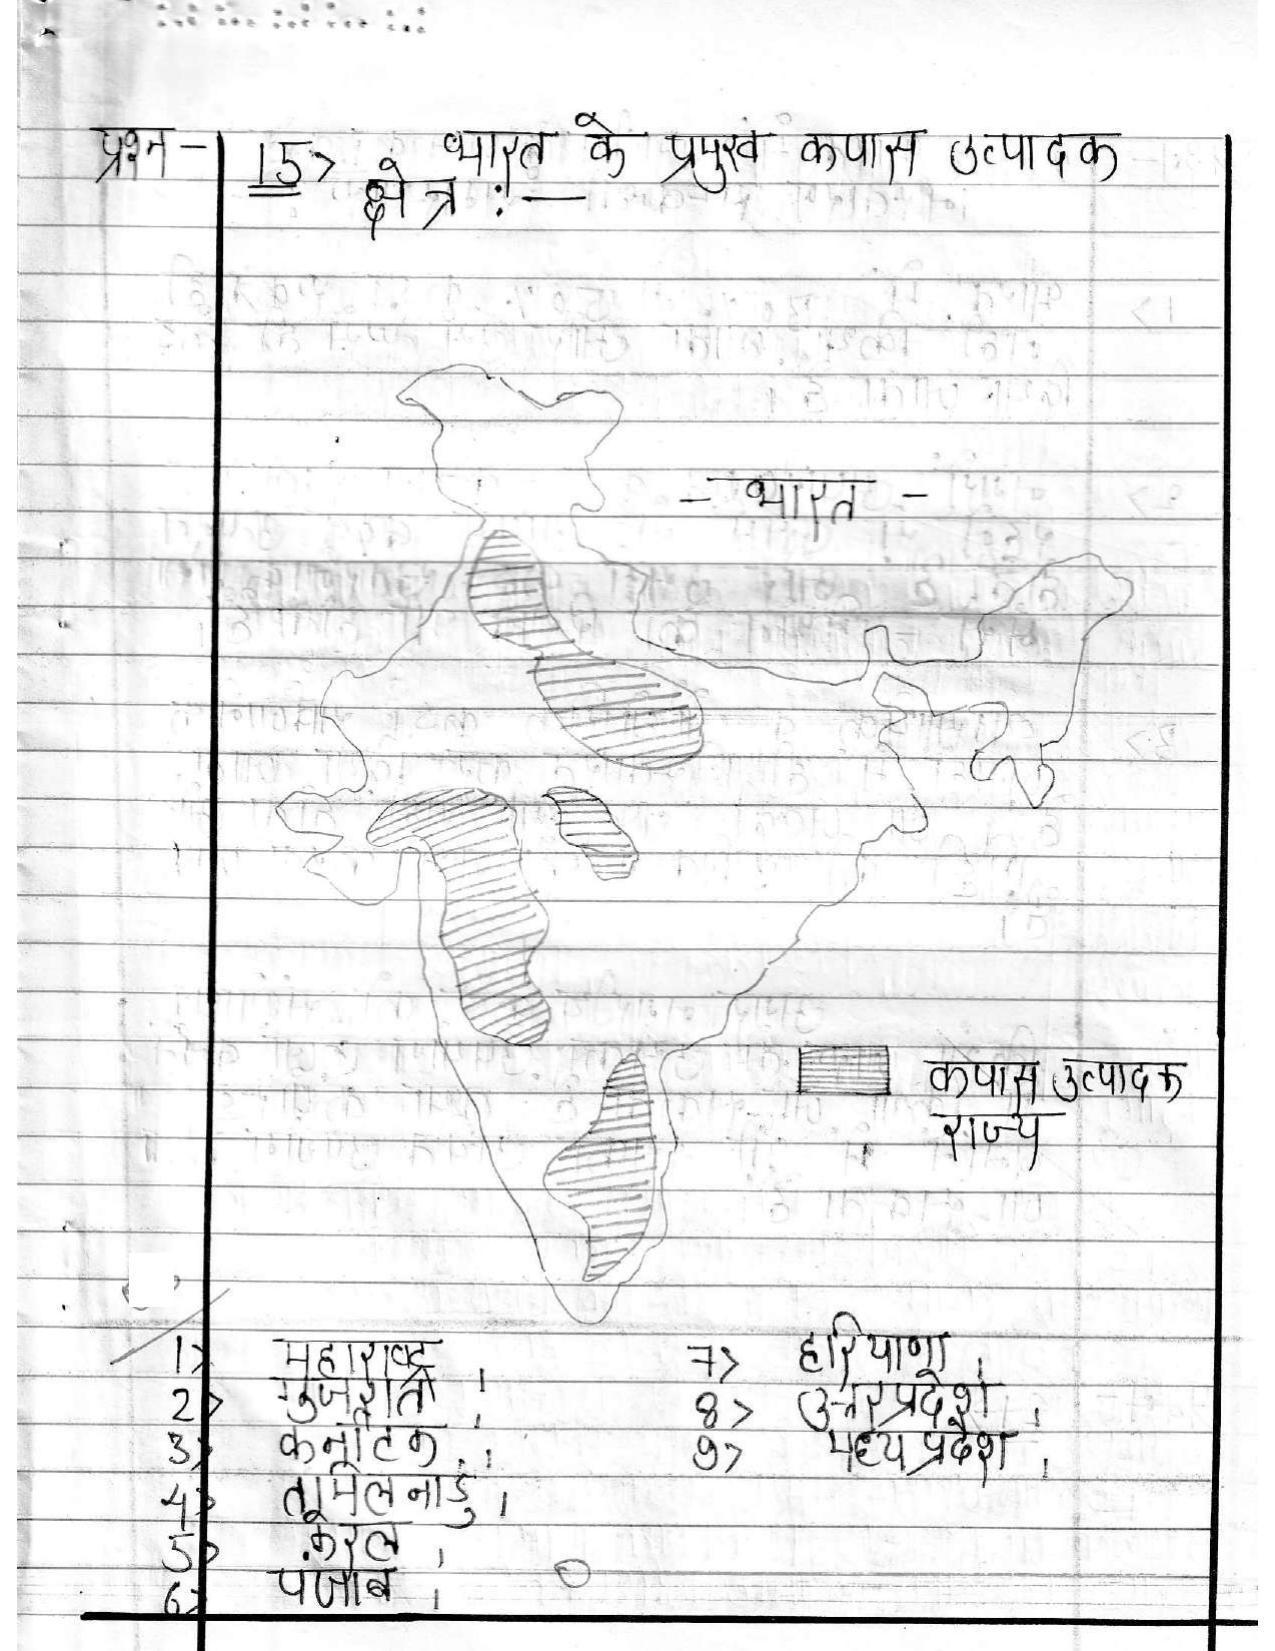 प्रश्न - 15> भारत के प्रमुख कपास उत्पादक
क्षेत्र :—
- भारत -
कपास उत्पादक
राज्य
1> महाराष्ट्र,
2> गुजरात,
3> कर्नाटक,
4> तमिलनाडु,
5> केरल,
6> पंजाब,
7> हरियाणा,
8> उत्तर प्रदेश,
9> मध्य प्रदेश,